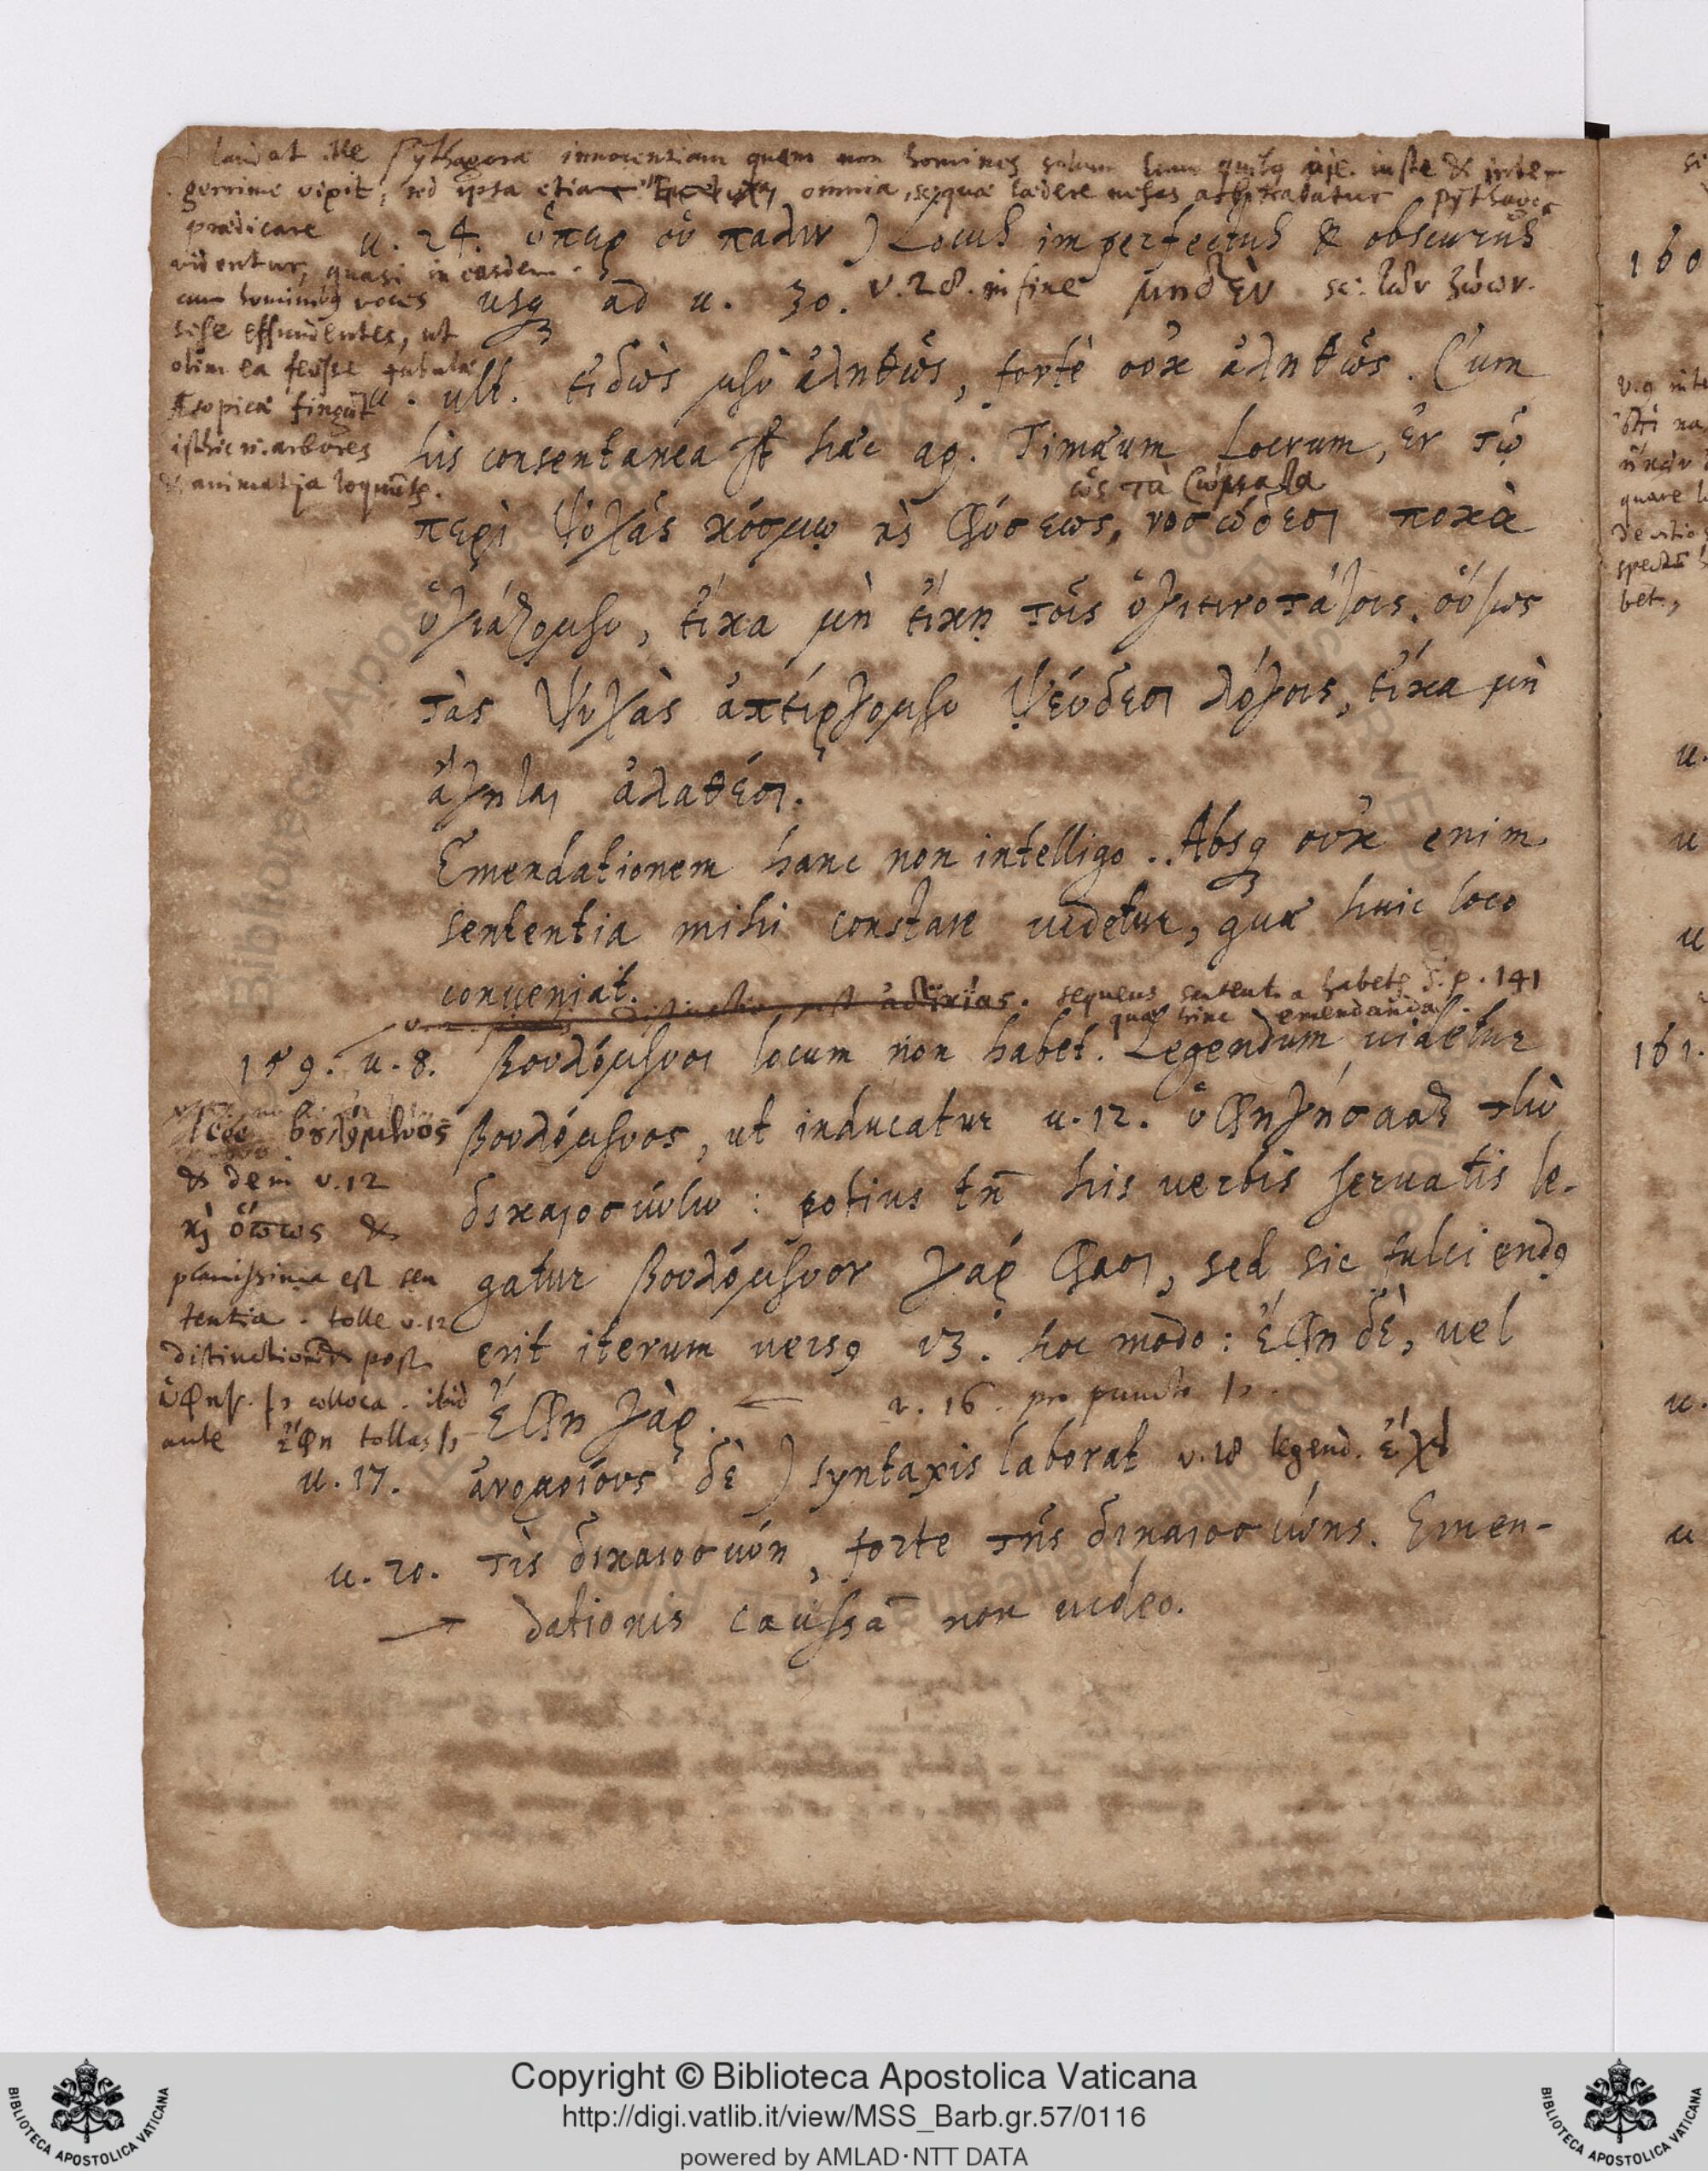 laudat ille Pythagorae innocentiam quem non homines solum cum quibus iuste & integ
gerrime vixit, sed ipsa etiam ἔμψυχα omnia, seque laedere nefas arbitrabatur pythagor
praedicare
videntur, quasi in easdem
cum hominibus voces
sese effundentes, ut
olim ea fuisse fabulae
Æsopicae fingūt
isthic n. arbores
& animalia loquūtur.
u. 24. ὅπερ οὐ πάλιν ) Locus imperfectus & obscurus
usq ad u. 30. v. 28. in fine μηδὲν sc: τῶν ζώων.
u. ult. εἰδὼς μὲν ἀληθῶς, fortè οὐκ ἀληθῶς. Cum
his consentanea st haec ap. Timaeum Locrum, ἐν τῷ
ὡς τὰ σώματα
περὶ ψυχᾶς κόσμω κὶ φύσεως, νοσώδεσι ποκὰ
ὑγιάζομεν, εἴκα μὴ εἴκῃ τοῖς ὑγιεινοτάτοις, οὕτως
τὰς ψυχὰς ἀπείργομεν ψεύδεσι λόγοις, εἴκα μὴ
ἄγηται ἀλαθέσι.
Emendationem hanc non intelligo. Absq οὐκ enim
sententia mihi constare videtur, quae huic loco
conveniat.
ἀδικίας. sequens sentent. a habetr s. p. 141
quae hinc emendanda.
159. u. 8. βουλόμενοι locum non habet. Legendum videtur
βουλόμενος, ut inducatur u. 12. ὑφηγήσασθ τὴν
δικαιοσύνην : potius tn̄ his verbis servatis le-
gatur βουλόμενον γάρ φασι, sed sic fulciendq
erit iterum versq 13. hoc modo: ἔφη δὲ, vel
ἔφη γὰρ.
v. 16. pro puncto
lego βȣλόμενος
& dein v. 12
κὶ ὅπως &
planissima est sen
tentia. tolle v. 12
distinctionē & post
ὑφηγ. colloca. ibid
ante ἔφη tollas
u. 17. ἀνομοίους δὲ ) syntaxis laborat v. 18 legend. ἔχει
u. 20. τὶς δικαιοσύνη, forte τῆς δικαιοσύνης. Emen-
dationis caussā non video.
160
161.
Copyright © Biblioteca Apostolica Vaticana
http://digi.vatlib.it/view/MSS_Barb.gr.57/0116
powered by AMLAD·NTT DATA
BIBLIOTECA APOSTOLICA VATICANA
BIBLIOTECA APOSTOLICA VATICANA